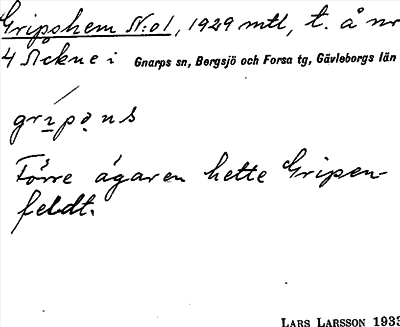 Gripshem N:o1, 1929 mtl, t. å nr
4 Röckne i Gnarps sn, Bergsjö och Forsa tg, Gävleborgs län
gripǫns
Förre ägaren hette Gripen-
feldt.
LARS LARSSON 1933